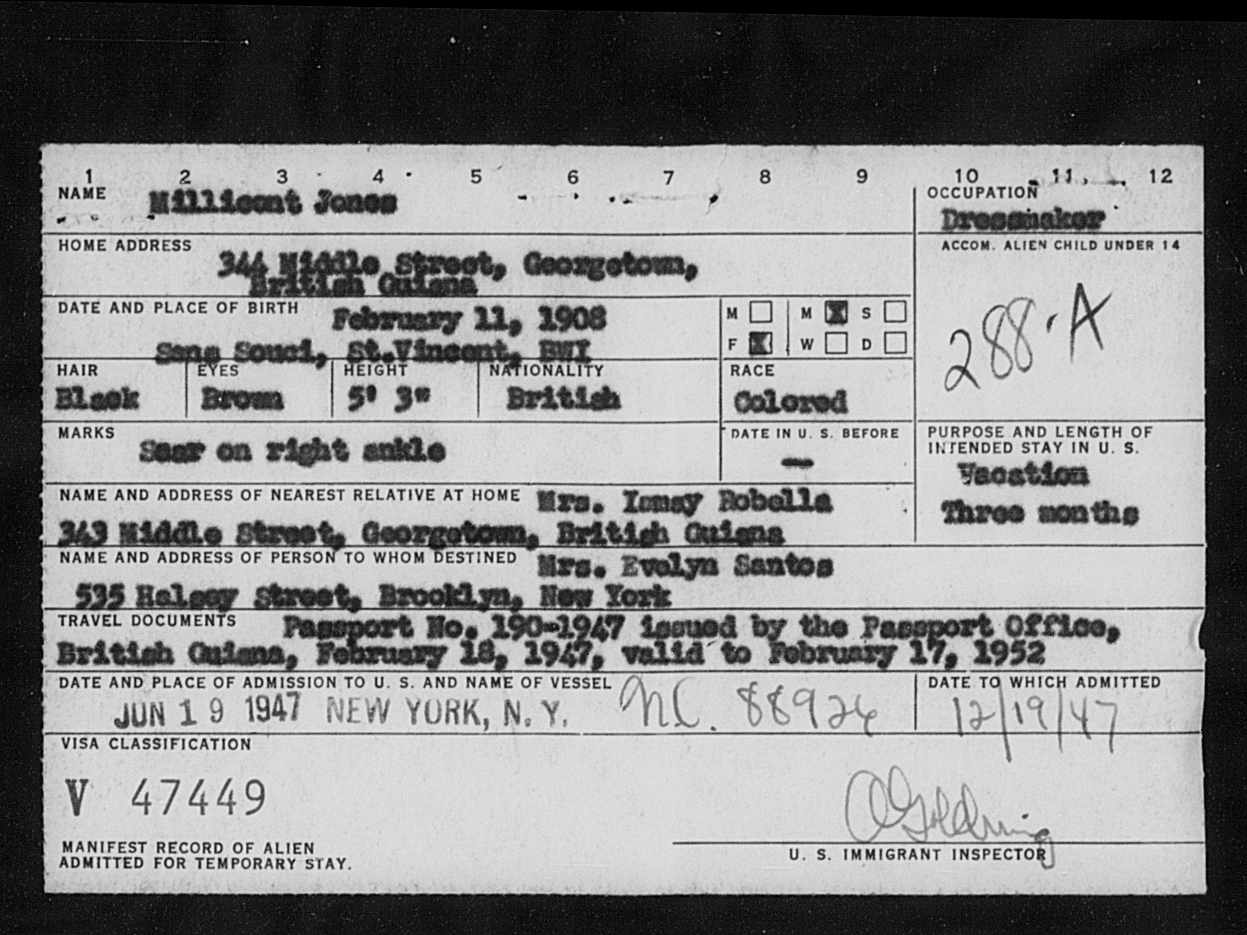 1 2 3 4 5 6 7 8 9 10 11 12
NAME Millicent Jones
OCCUPATION
Dressmaker
HOME ADDRESS
344 Middle Street, Georgetown,
British Guiana
ACCOM. ALIEN CHILD UNDER 14
288-A
DATE AND PLACE OF BIRTH February 11, 1908
Sans Souci, St.Vincent, BWI
M M X S
F X W D
HAIR EYES HEIGHT NATIONALITY RACE
Black Brown 5' 3" British Colored
MARKS
Scar on right ankle
DATE IN U. S. BEFORE
—
PURPOSE AND LENGTH OF
INTENDED STAY IN U. S.
Vacation
Three months
NAME AND ADDRESS OF NEAREST RELATIVE AT HOME Mrs. Ismay Robella
343 Middle Street, Georgetown, British Guiana
NAME AND ADDRESS OF PERSON TO WHOM DESTINED Mrs. Evelyn Santos
535 Halsey Street, Brooklyn, New York
TRAVEL DOCUMENTS Passport No. 190-1947 issued by the Passport Office,
British Guiana, February 18, 1947, valid to February 17, 1952
DATE AND PLACE OF ADMISSION TO U. S. AND NAME OF VESSEL
JUN 19 1947 NEW YORK, N. Y. NC. 88926
DATE TO WHICH ADMITTED
12/19/47
VISA CLASSIFICATION
V 47449
MANIFEST RECORD OF ALIEN
ADMITTED FOR TEMPORARY STAY.
U. S. IMMIGRANT INSPECTOR